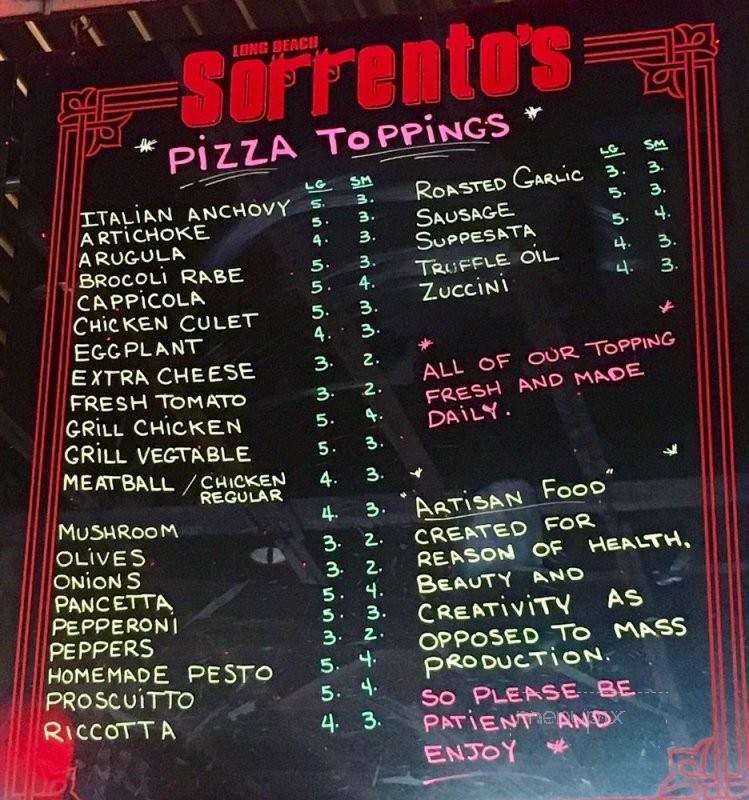 LONG BEACH
Sorrento's
PIZZA TOPPINGS
LG SM
ITALIAN ANCHOVY 5. 3.
ARTICHOKE 5. 3.
ARUGULA 4. 3.
BROCOLI RABE 5. 3.
CAPPICOLA 5. 4.
CHICKEN CULET 5. 3.
EGGPLANT 4. 3.
EXTRA CHEESE 3. 2.
FRESH TOMATO 3. 2.
GRILL CHICKEN 5. 4.
GRILL VEGTABLE 5. 3.
MEATBALL / CHICKEN 4. 3.
REGULAR
MUSHROOM 4. 3.
OLIVES 3. 2.
ONIONS 3. 2.
PANCETTA 5. 4.
PEPPERONI 5. 3.
PEPPERS 3. 2.
HOMEMADE PESTO 5. 4.
PROSCUITTO 5. 4.
RICCOTTA 4. 3.
LG SM
ROASTED GARLIC 3. 3.
SAUSAGE 5. 3.
SUPPESATA 5. 4.
TRUFFLE OIL 4. 3.
ZUCCINI 4. 3.
ALL OF OUR TOPPING
FRESH AND MADE
DAILY.
"ARTISAN FOOD"
CREATED FOR
REASON OF HEALTH,
BEAUTY AND
CREATIVITY AS
OPPOSED TO MASS
PRODUCTION.
SO PLEASE BE
PATIENT AND
ENJOY